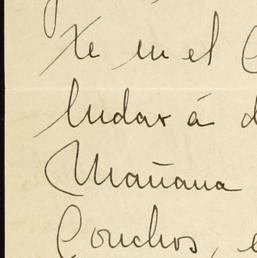 te en el
ludar á d
Mañana
Conchos, e